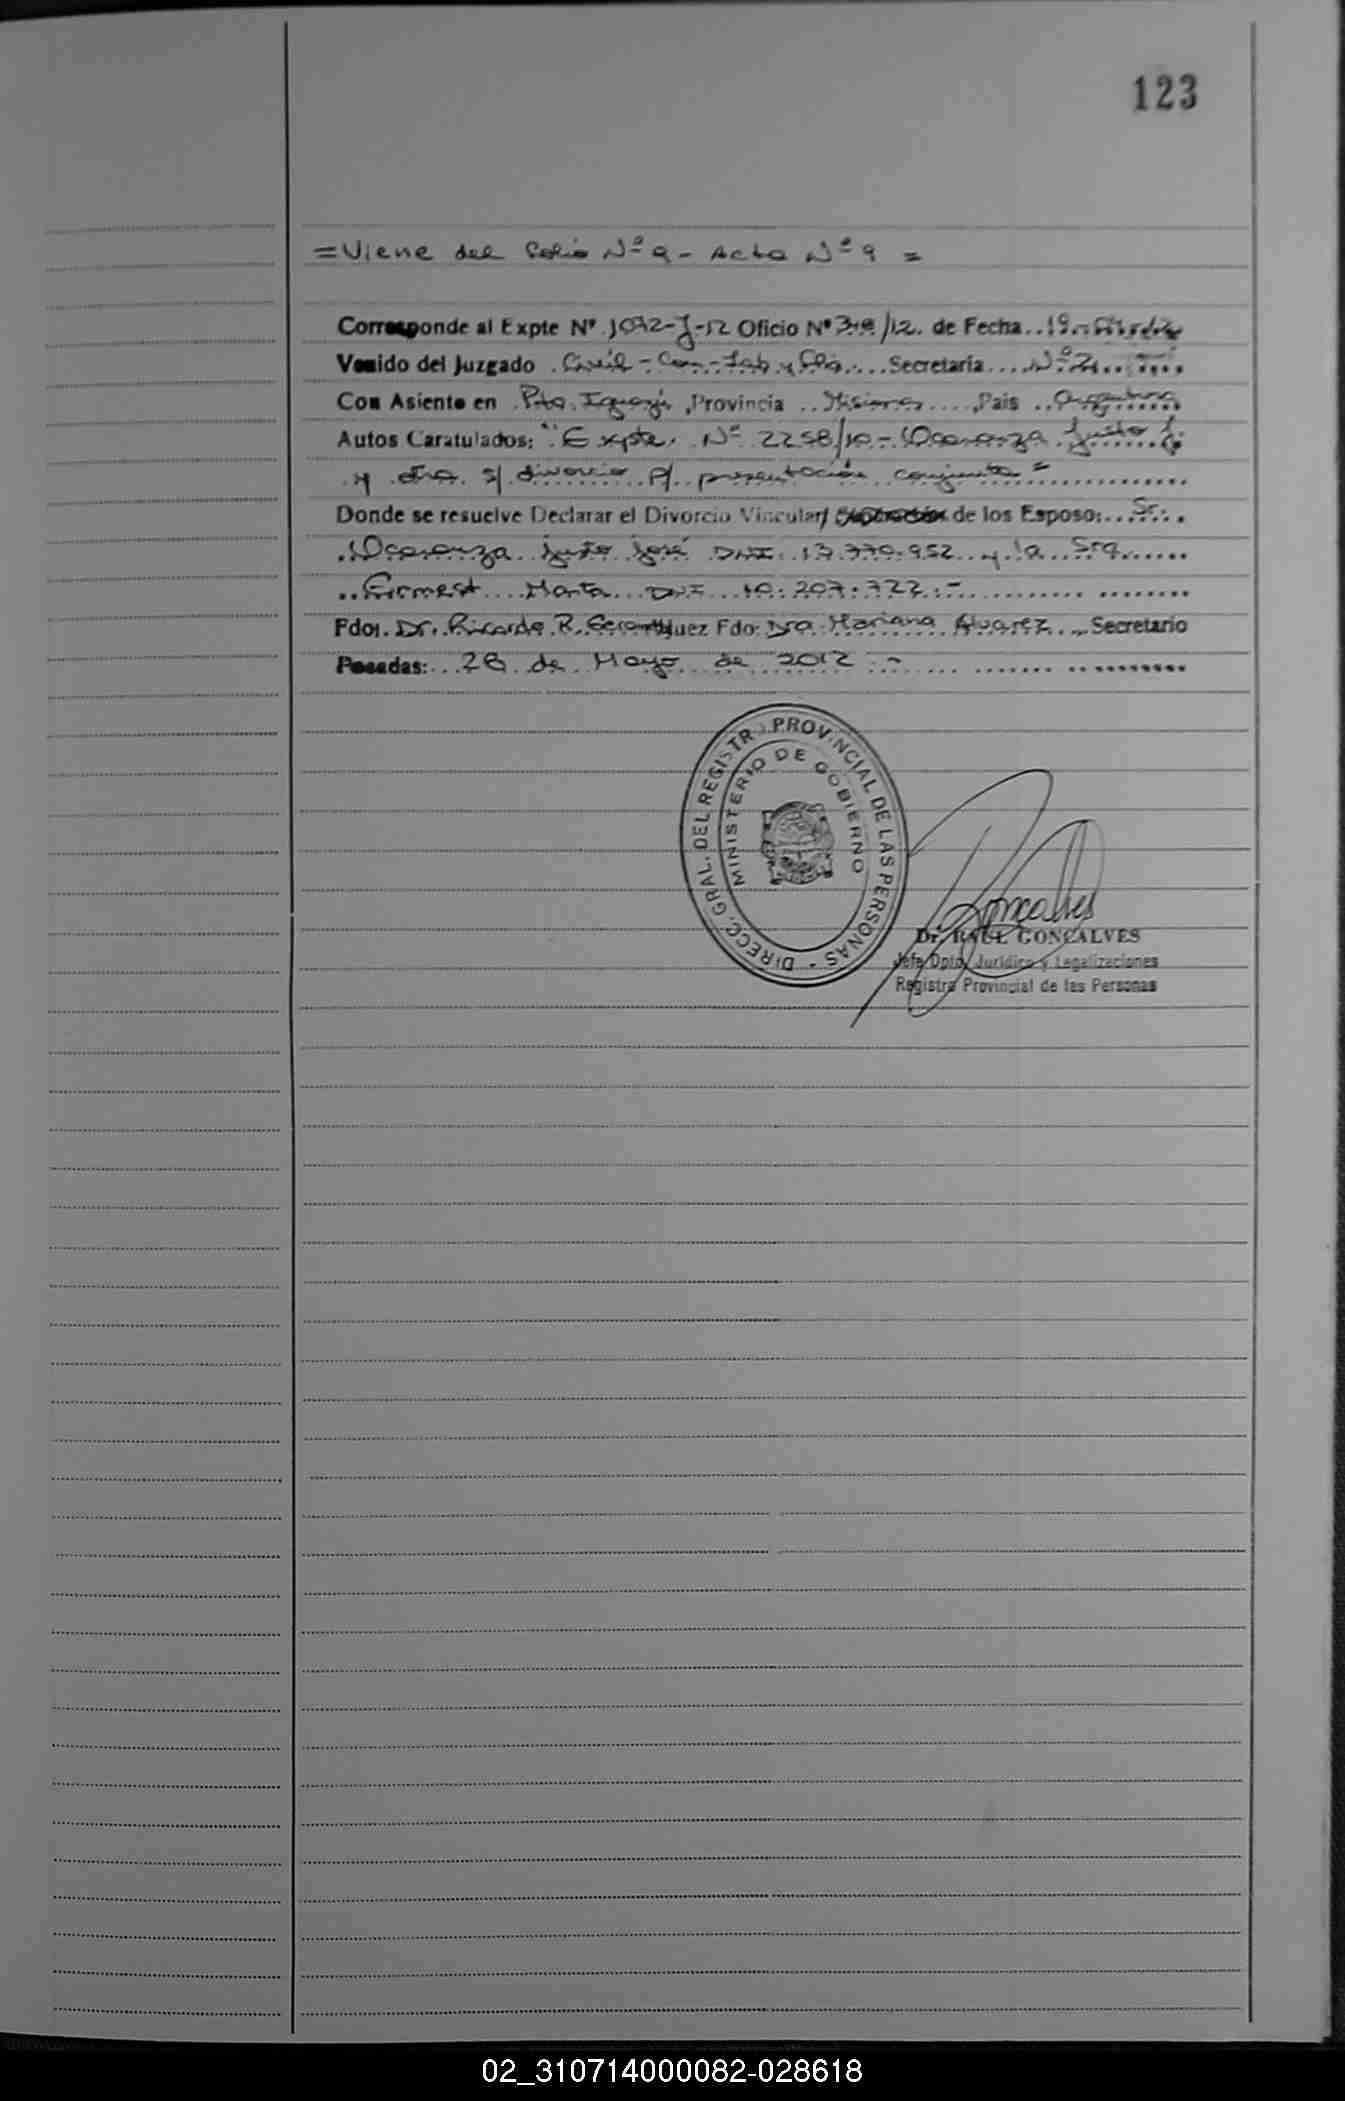 123
= Viene del Folio Nº 9 - Acta Nº 9 =
Corresponde al Expte Nº 1072-J-12 Oficio Nº 319/12. de Fecha 19
Venido del Juzgado Civil - Com - Lab y Flia Secretaria Nº 2
Con Asiento en Pto. Iguazú, Provincia Misiones, Pais Argentina
Autos Caratulados: "Expte. Nº 2258/10 - Ocaranza Justo J.
y otra s/ divorcio p/ presentación conjunta"
Donde se resuelve Declarar el Divorcio Vincular/ de los Esposo: Sr.
Ocaranza Justo José DNI: 13.770.952 y la Sra
Marta DNI 10.207.722.-
Fdo: Dr. Ricardo R. Juez Fdo: Dra Mariana Alvarez Secretario
Posadas: 28 de Mayo de 2012.-
DIRECC. GRAL. DEL REGISTRO PROVINCIAL DE LAS PERSONAS -
MINISTERIO DE GOBIERNO
Gonçalves
Dr. RAUL GONÇALVES
Jefe Dpto. Jurídico y Legalizaciones
Registro Provincial de las Personas
02_310714000082-028618